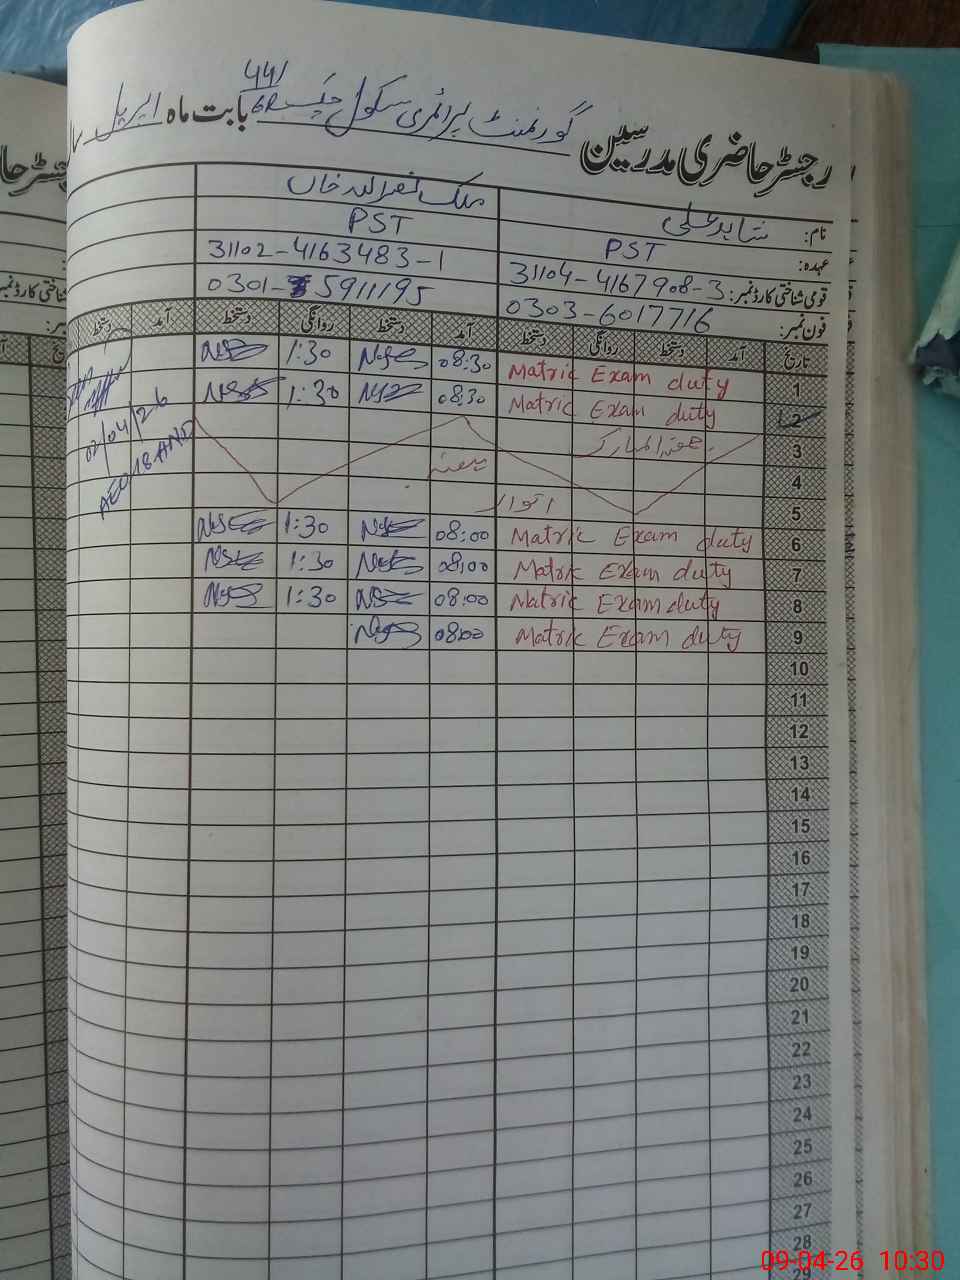 رجسٹر حاضری مدرسین گورنمنٹ پرائمری سکول چک 441/6R بابت ماہ اپریل
نام: شاہد علی ملک نصراللہ خاں
عہدہ: PST PST
قومی شناختی کارڈ نمبر: 31104-4167908-3 31102-4163483-1
فون نمبر: 0303-6017716 0301-5911195
تاریخ آمد دستخط روانگی دستخط آمد دستخط روانگی دستخط آمد دستخط
1 Matric Exam duty 08:30 1:30
2 Matric Exam duty 08:30 1:30
02/04/26
3 جمعۃ المبارک
4 ہفتہ
5 اتوار
6 Matric Exam duty 08:00 1:30
7 Matric Exam duty 08:00 1:30
8 Matric Exam duty 08:00 1:30
9 Matric Exam duty 08:00
10
11
12
13
14
15
16
17
18
19
20
21
22
23
24
25
26
27
28
29
09-04-26 10:30